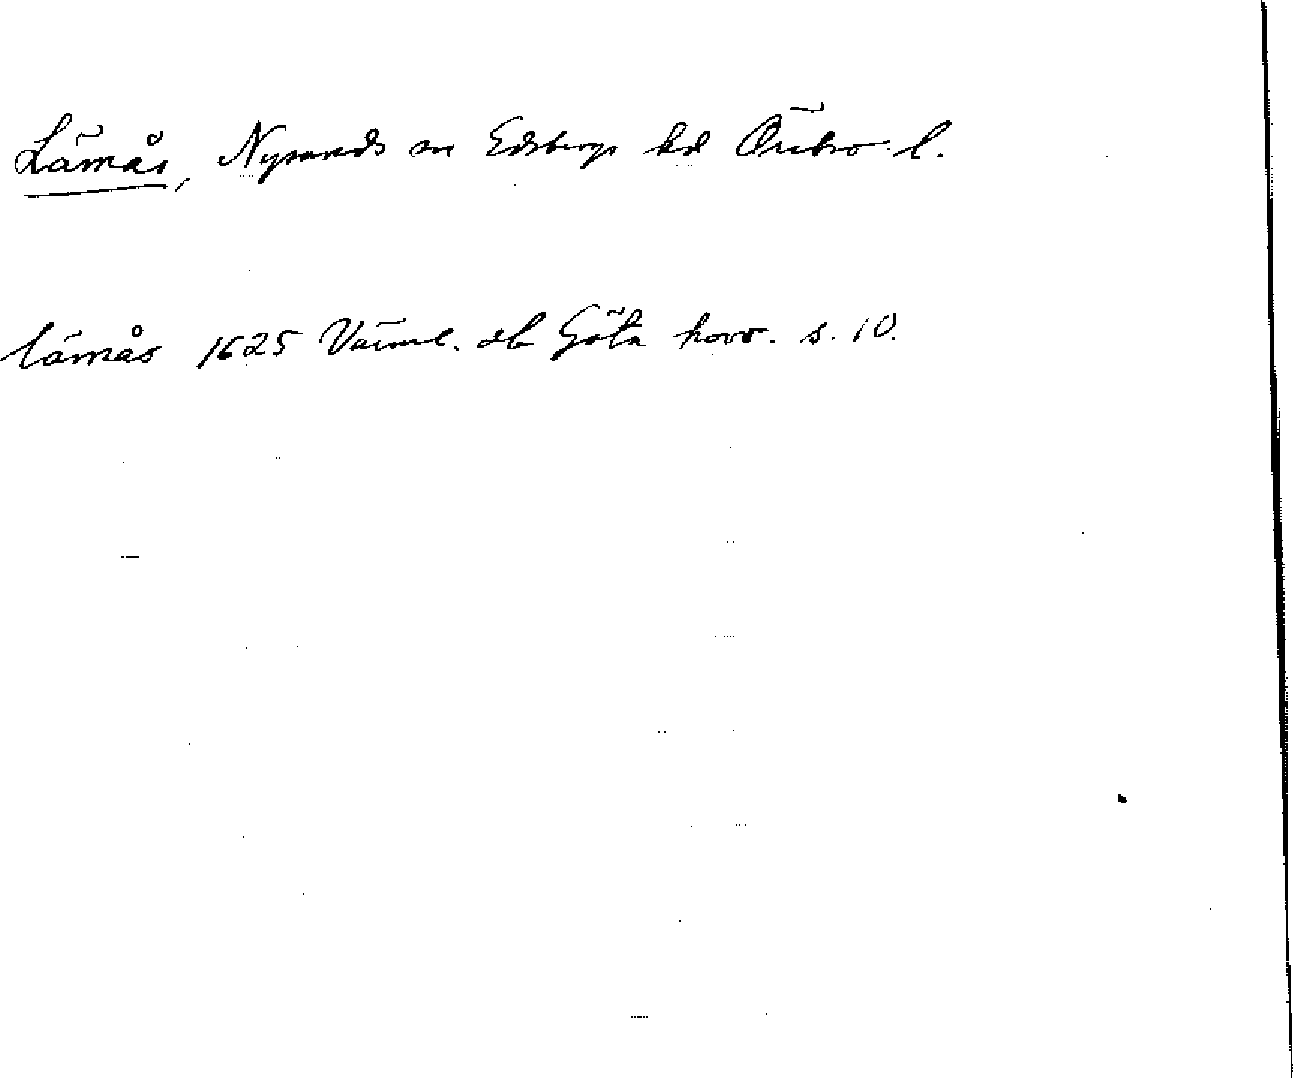 Lämås, Nysunds sn Edsbergs hd Örebro l.
lämås 1625 Värml. db Göta hovr. s. 10.